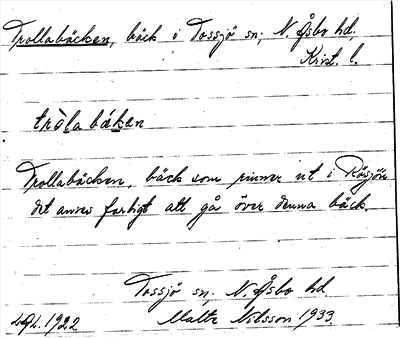 Trollabäcken, bäck i Tossjö sn, N. Åsbo hd.
Krist. l.
tròlabäken
Trollabäcken, bäck som rinner ut i Rösjön
det anses farligt att gå över denna bäck.
Tossjö sn, N. Åsbo hd
1922 Malte Nilsson 1933.